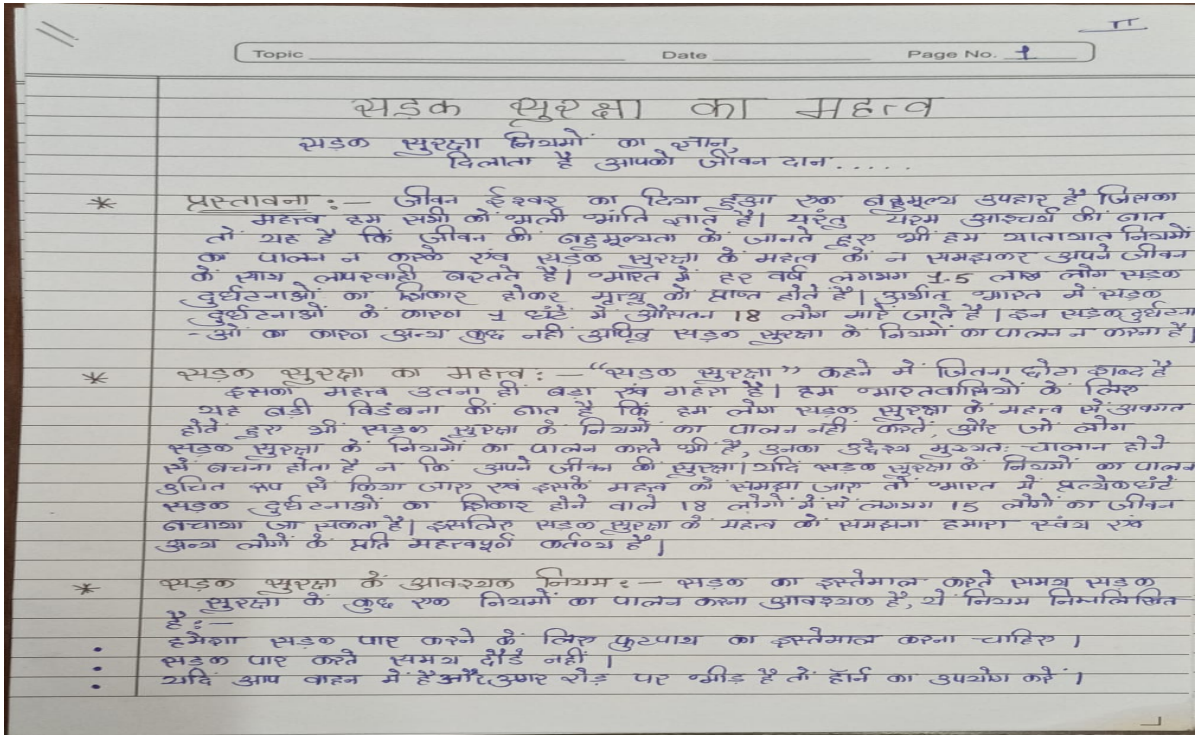 II
Topic Date Page No. 1
सड़क सुरक्षा का महत्व
सड़क सुरक्षा नियमों का ज्ञान,
दिलाता है आपको जीवन दान.....
* प्रस्तावना :— जीवन ईश्वर का दिया हुआ एक बहुमूल्य उपहार है जिसका
महत्व हम सभी को भली भांति ज्ञात है। परंतु परम आश्चर्य की बात
तो यह है कि जीवन की बहुमूल्यता को जानते हुए भी हम यातायात नियमों
का पालन न करके एवं सड़क सुरक्षा के महत्व को न समझकर अपने जीवन
के साथ लापरवाही बरतते है। भारत में हर वर्ष लगभग 1.5 लाख लोग सड़क
दुर्घटनाओं का शिकार होकर मृत्यु को प्राप्त होते है। अर्थात् भारत में सड़क
दुर्घटनाओं के कारण 1 घंटे में औसतन 18 लोग मारे जाते है। इन सड़क दुर्घटना
ओं का कारण अन्य कुछ नहीं अपितु सड़क सुरक्षा के नियमों का पालन न करना है।
* सड़क सुरक्षा का महत्व :— “सड़क सुरक्षा” कहने में जितना छोटा शब्द है
इसका महत्व उतना ही बड़ा एवं गहरा है। हम भारतवासियों के लिए
यह बड़ी विडंबना की बात है कि हम लोग सड़क सुरक्षा के महत्व से अवगत
होते हुए भी सड़क सुरक्षा के नियमों का पालन नहीं करते, और जो लोग
सड़क सुरक्षा के नियमों का पालन करते भी है, उनका उद्देश्य मुख्यतः चालान होने
से बचना होता है न कि अपने जीवन की सुरक्षा। यदि सड़क सुरक्षा के नियमों का पालन
उचित रूप से किया जाए एवं इसके महत्व को समझा जाए तो भारत में प्रत्येक घंटे
सड़क दुर्घटनाओं का शिकार होने वाले 18 लोगों में से लगभग 15 लोगों का जीवन
बचाया जा सकता है। इसलिए सड़क सुरक्षा के महत्व को समझना हमारा स्वंय एवं
अन्य लोगों के प्रति महत्वपूर्ण कर्तव्य है।
* सड़क सुरक्षा के आवश्यक नियम :— सड़क का इस्तेमाल करते समय सड़क
सुरक्षा के कुछ एक नियमों का पालन करना आवश्यक है, ये नियम निम्नलिखित
है :—
• हमेशा सड़क पार करने के लिए फुटपाथ का इस्तेमाल करना चाहिए।
• सड़क पार करते समय दौडे नहीं।
• यदि आप वाहन में है और अगर रोड़ पर भीड़ है तो हॉर्न का उपयोग करें।